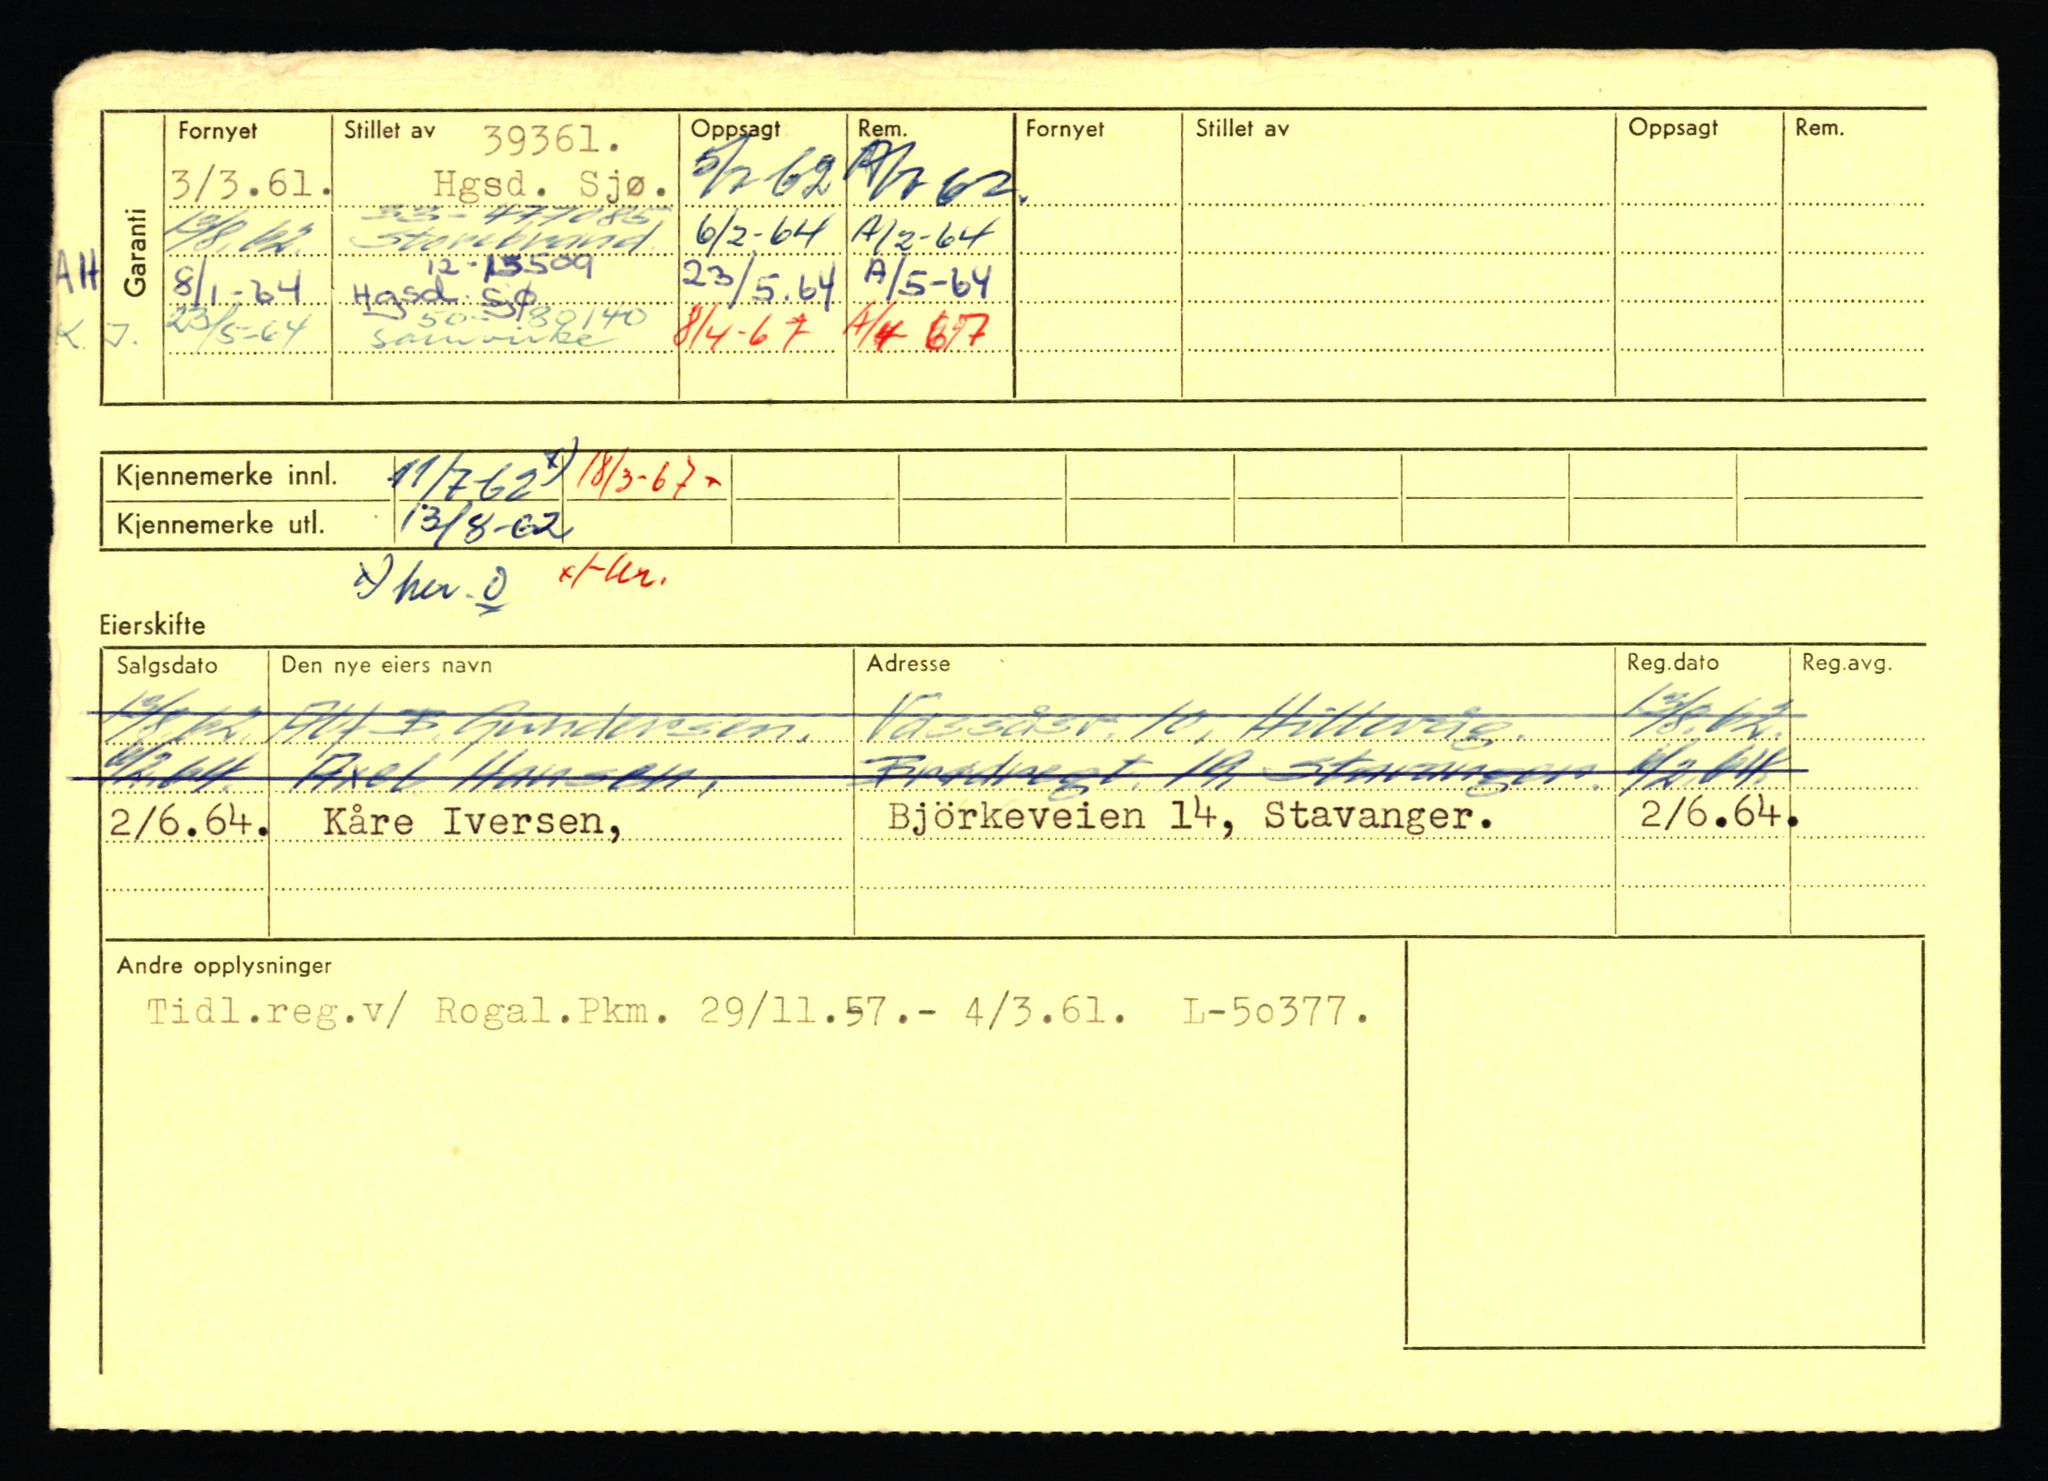 Garanti
Fornyet Stillet av 39361. Oppsagt Rem. Fornyet Stillet av Oppsagt Rem.
3/3.61. Hgsd. Sjø. 5/7 62 A/7 62.
33-477085
13/8.62. Storebrand. 6/2-64 A/2-64
12-15509
AH 8/1-64 Hgsd. Sjø 23/5.64 A/5-64
K. J. 23/5-64 50-80140 8/4-67 A/4 67
Samvirke
Kjennemerke innl. 11/7-62 x) 18/3-67
Kjennemerke utl. 13/8-62
x) her. O
Eierskifte
Salgsdato Den nye eiers navn Adresse Reg.dato Reg.avg.
13/8.62. Alf Gundersen, Vassåsv. 10, Hillevåg. 13/8.62.
6/2.64. Axel Hansen, 19, Stavanger. 6/2.64.
2/6.64. Kåre Iversen, Björkeveien 14, Stavanger. 2/6.64.
Andre opplysninger
Tidl.reg.v/ Rogal.Pkm. 29/11.57.- 4/3.61. L-50377.